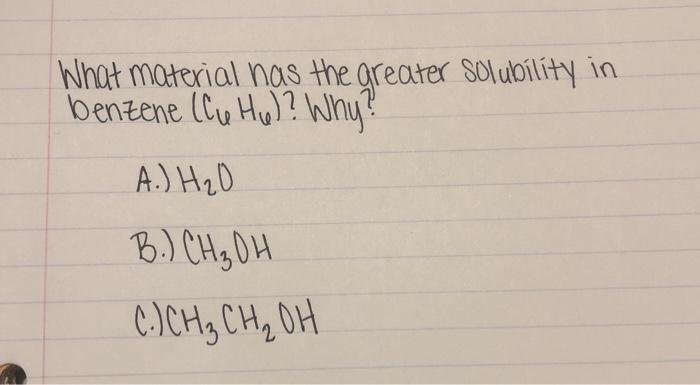 What material has the greater solubility in
benzene (C₆H₆)? Why?
A.) H₂O
B.) CH₃OH
C.) CH₃CH₂OH